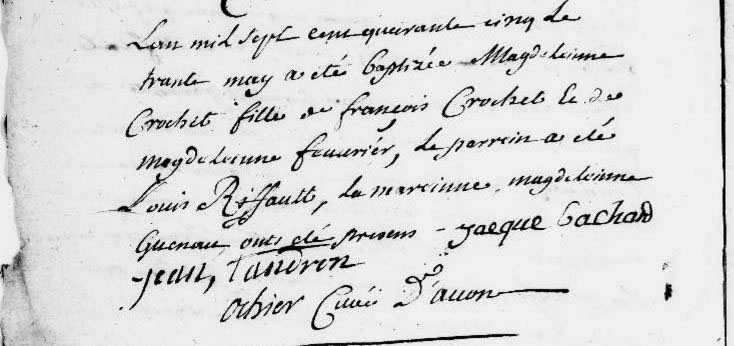 Lan mil sept cent quarante cinq le
trante may a eté baptizée Magdeleinne
Crochet fille de françois Crochet Et de
magdeleinne feuvriér, le parrein a eté
Louis Réffault, la mareinne, magdeleinne
Guenau, onts eté presens - jacque bachard
jean, Tandron
ochier Curé D'avon